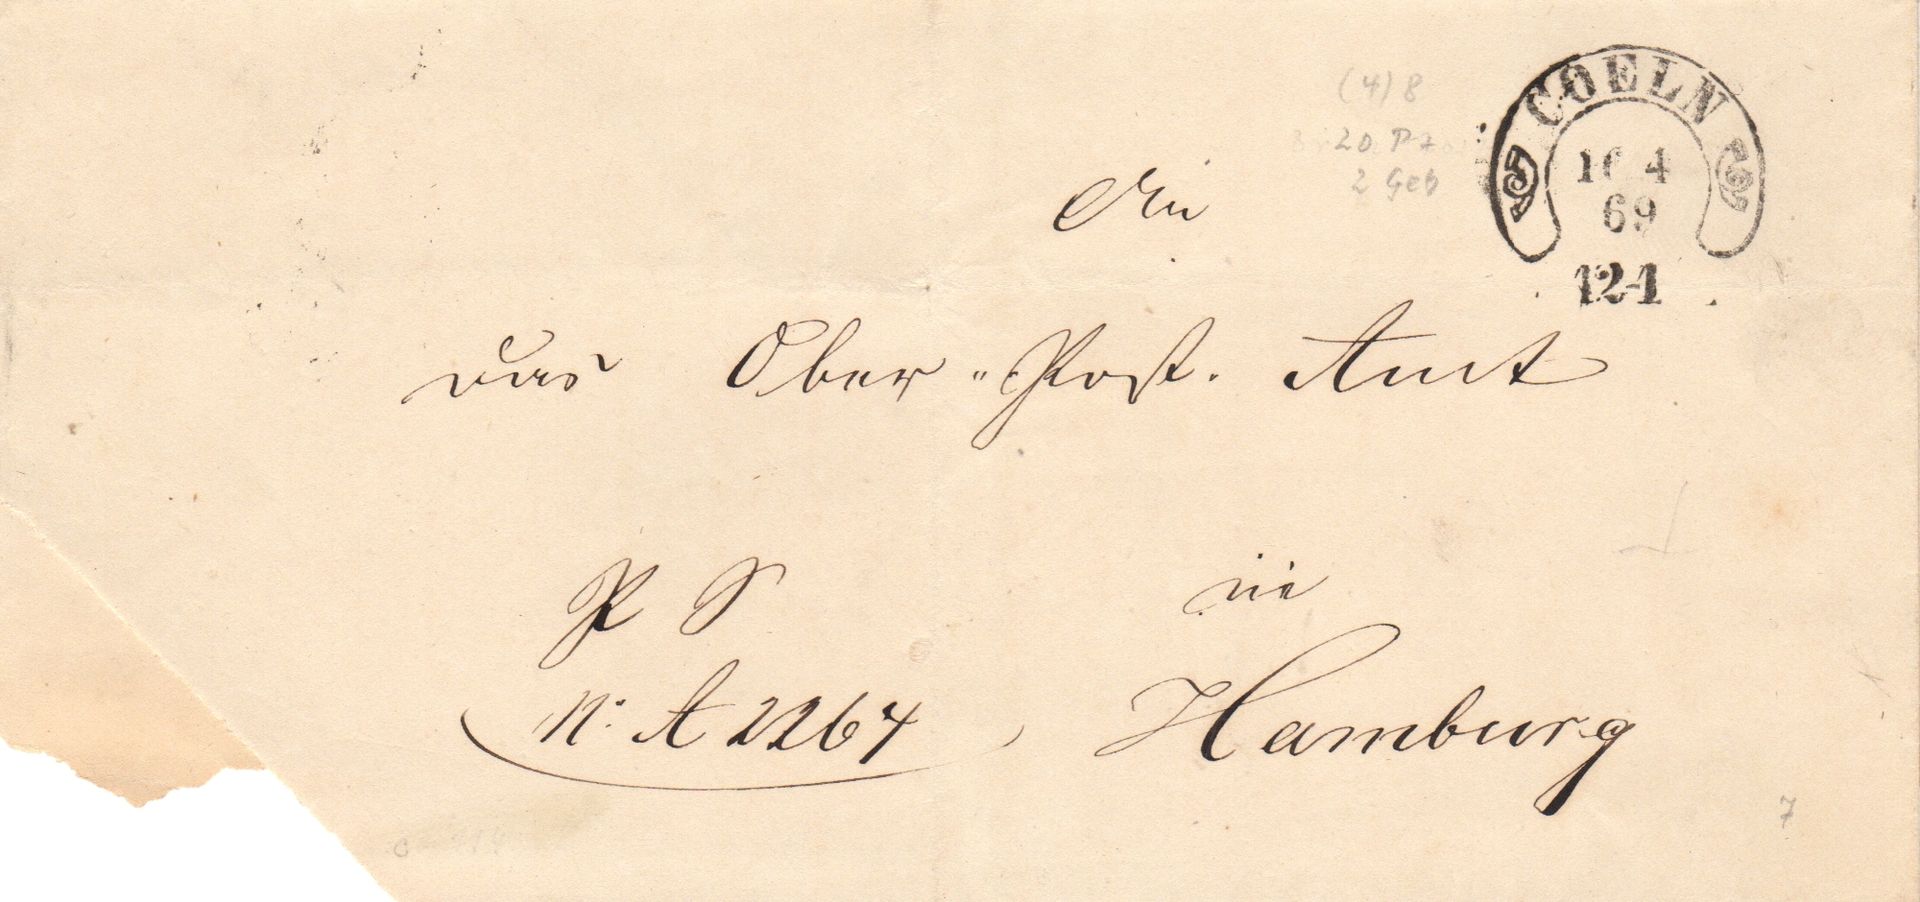 COELN
16 4
69
121
(4) 8
20
2 Geb
An
das Ober-Post-Amt
P S
in
No: A 2264
Hamburg
7